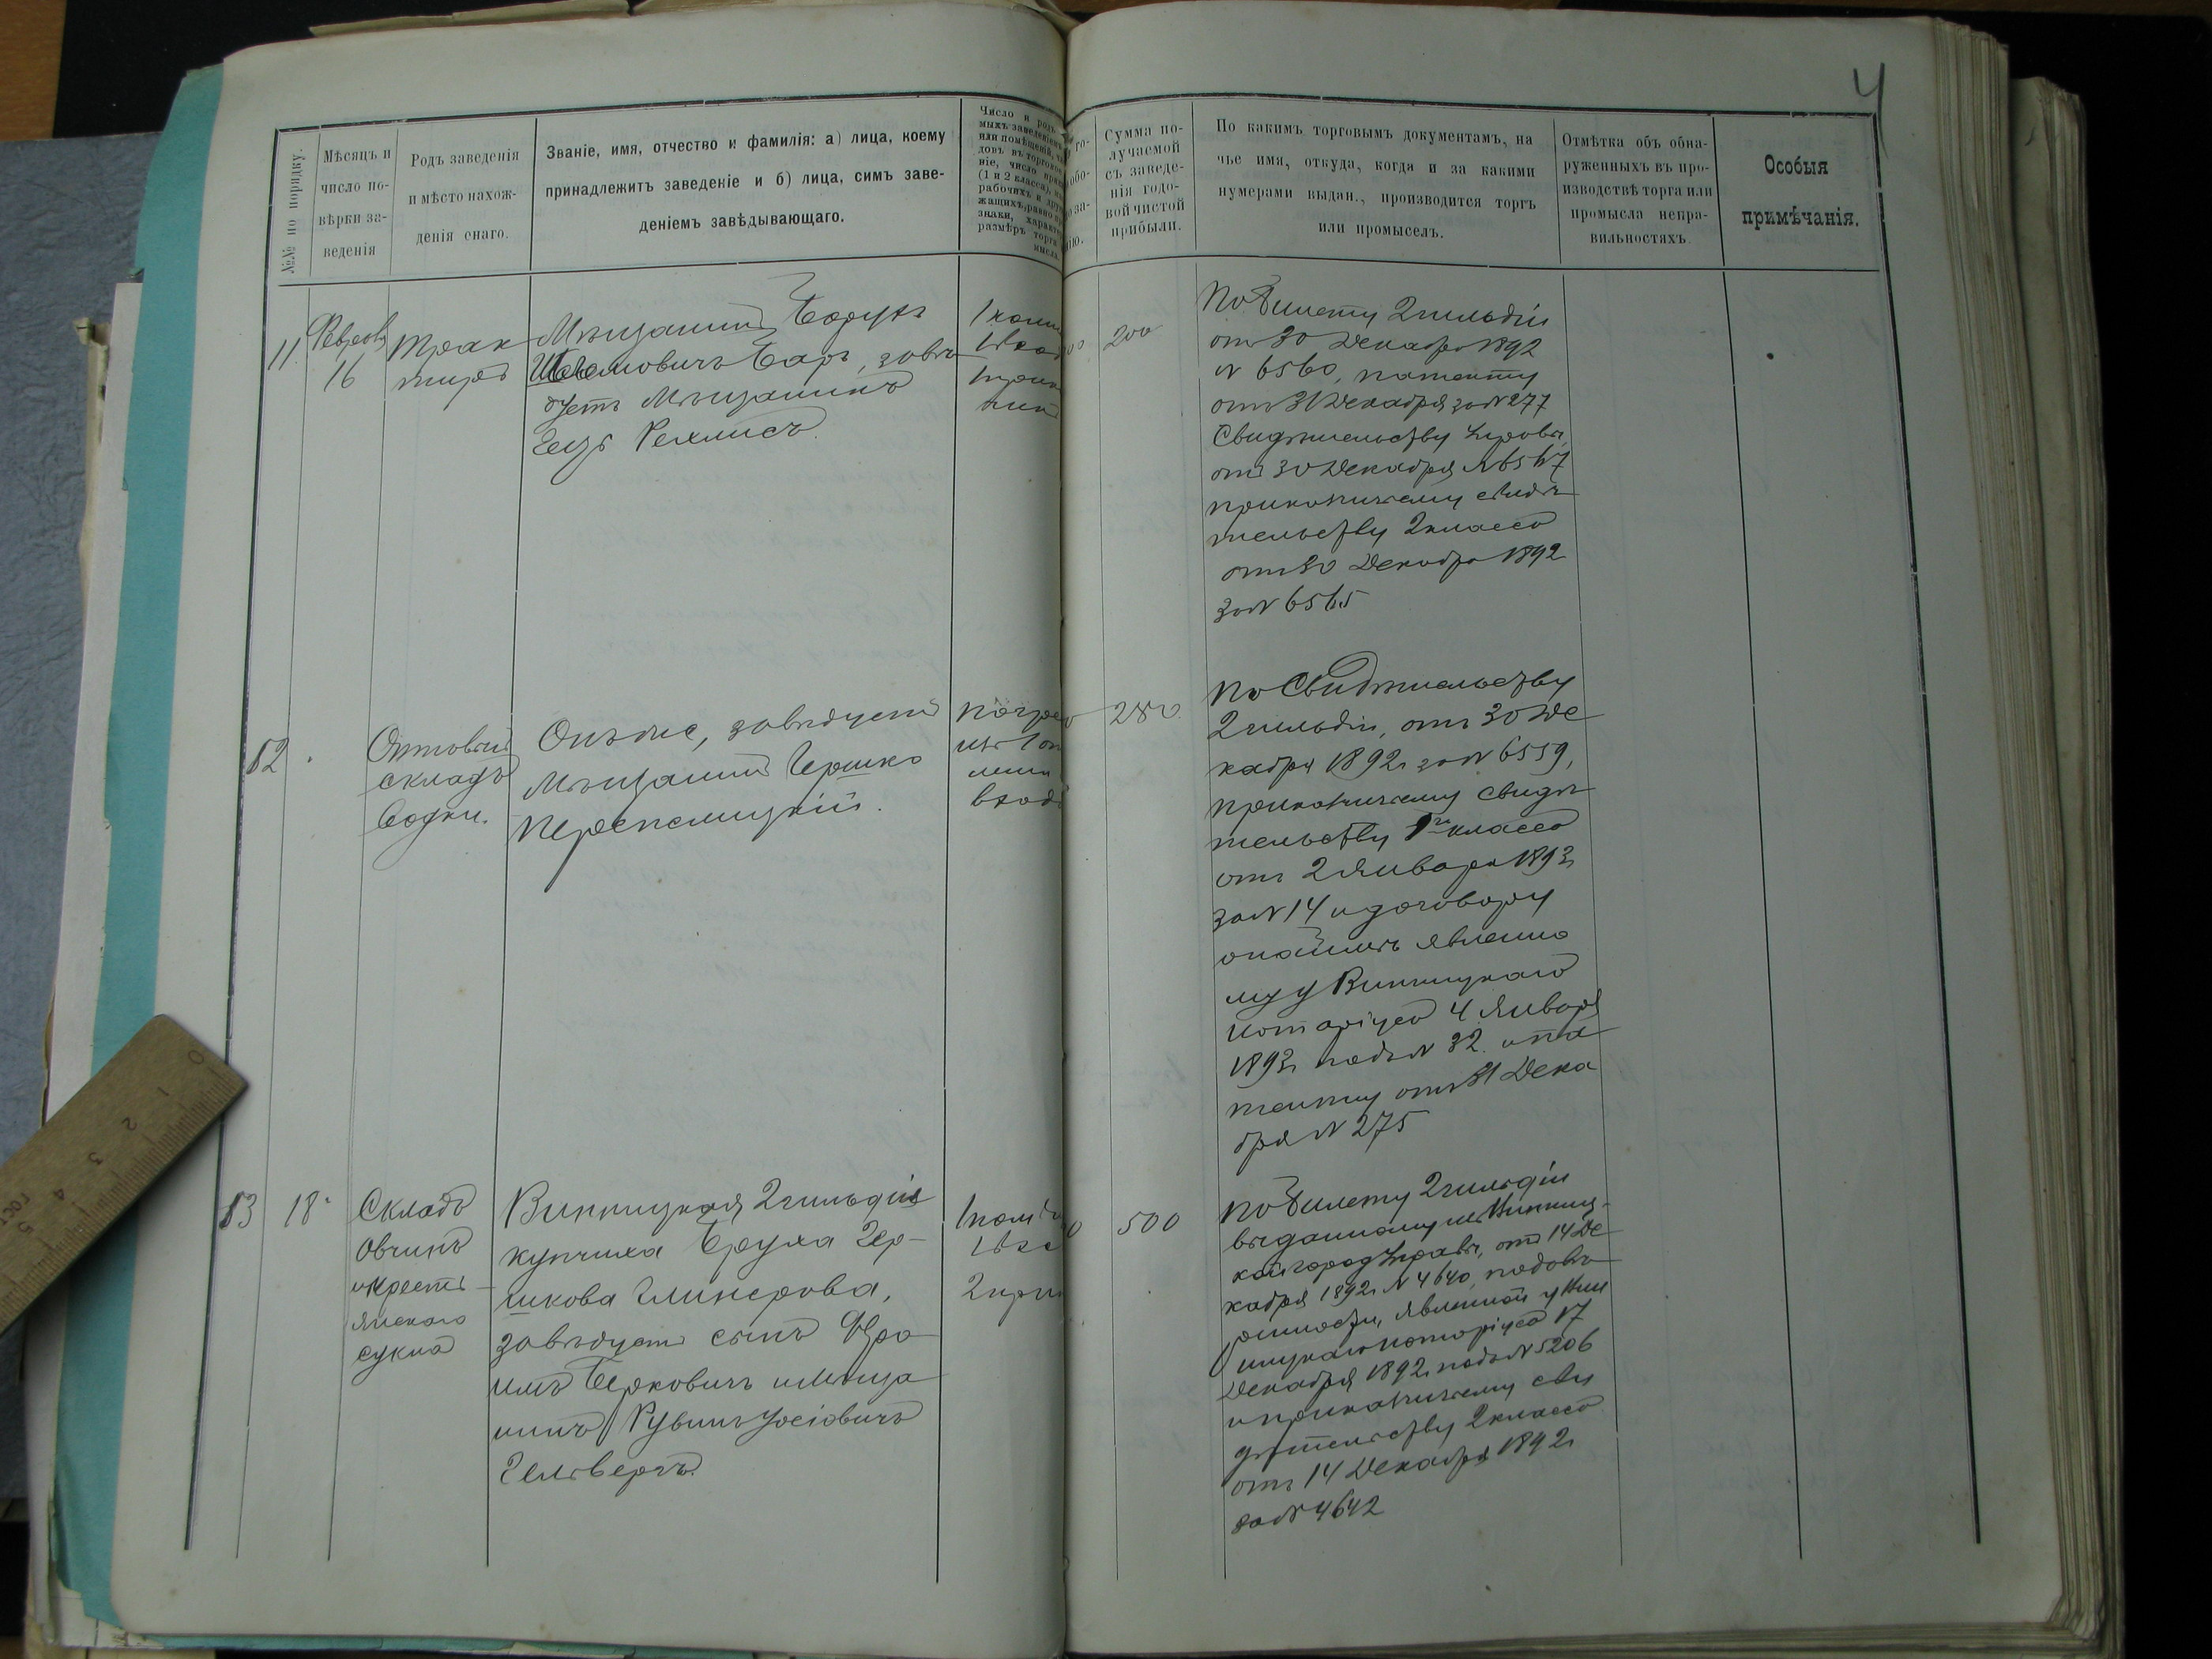 4
№№ по порядку.
Мѣсяцъ и
число по-
вѣрки за-
веденія
Родъ заведенія
и мѣсто нахож-
денія онаго.
Званіе, имя, отчество и фамилія: а) лица, коему
принадлежитъ заведеніе и б) лица, симъ заве-
деніемъ завѣдывающаго.
Число и родъ
мыхъ заведеніемъ
или помѣщеній,
довъ въ торговое
ніе, число
(1 и 2 класса),
рабочихъ и
жащихъ, равно
знаки,
размѣръ торга
мысла.
Сумма по-
лучаемой
съ заведе-
нія годо-
вой чистой
прибыли.
По какимъ торговымъ документамъ, на
чье имя, откуда, когда и за какими
нумерами выдан., производится торгъ
или промыселъ.
Отмѣтка объ обна-
руженныхъ въ про-
изводствѣ торга или
промысла непра-
вильностяхъ.
Особыя
примѣчанія.
11.
16
Трак
тиръ
Мѣщанинъ Борухъ
Баръ, завѣ
дуетъ Мѣщанинъ
200
По билету 2 гильдіи
отъ 30 Декабря 1892
№ 6560, патенту
отъ 31 Декабря за № 277
Свидѣтельству Управы
отъ 30 Декабря № 6567
приказчичьему свидѣ
тельству 2 класса
отъ 30 Декабря 1892
за № 6565
12
Оптовый
складъ
водки.
Онъ же, завѣдуетъ
Мѣщанинъ Гершко
280.
По Свидѣтельству
2 гильдіи, отъ 30 Де
кабря 1892 г за № 6559,
приказчичьему свидѣ
тельству 1го класса
отъ 2 Января 1893 г
за № 14 и договору
о наймѣ явленно
му у Винницкаго
нотаріуса 4 Января
1893 г подъ № 32. и па
тенту отъ 31 Дека
бря № 275
13
18
Складъ
Овчинъ
и крестъ
янскаго
сукна
Винницкая 2 гильдіи
купчиха Бруха Гер-
шкова Глинерова,
завѣдуетъ сынъ Фро
имъ Берковичъ и Мѣща
нинъ Рувинъ Іосіовичъ
Гельвергъ.
500
По билету 2 гильдіи
выданному изъ Винниц-
кой город Управы, отъ 14 Де
кабря 1892 г № 4640, по довѣ
ренности, явленной у Вин
ницкаго нотаріуса 17
Декабря 1892 г подъ № 5206
и приказчичьему сви
дѣтельству 2 класса
отъ 14 Декабря 1892 г
за № 4642